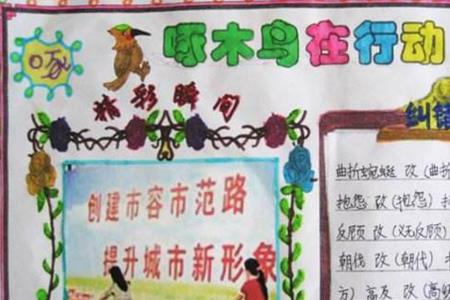 啄木鸟在行动
精彩瞬间
纠错
创建市容市范路
提升城市新形象
曲折蜿蜓 改(曲折
抱怨 改(抱怨)
反顾 改(义无反顾)
朝伐 改(朝代)
方) 高友 改(高